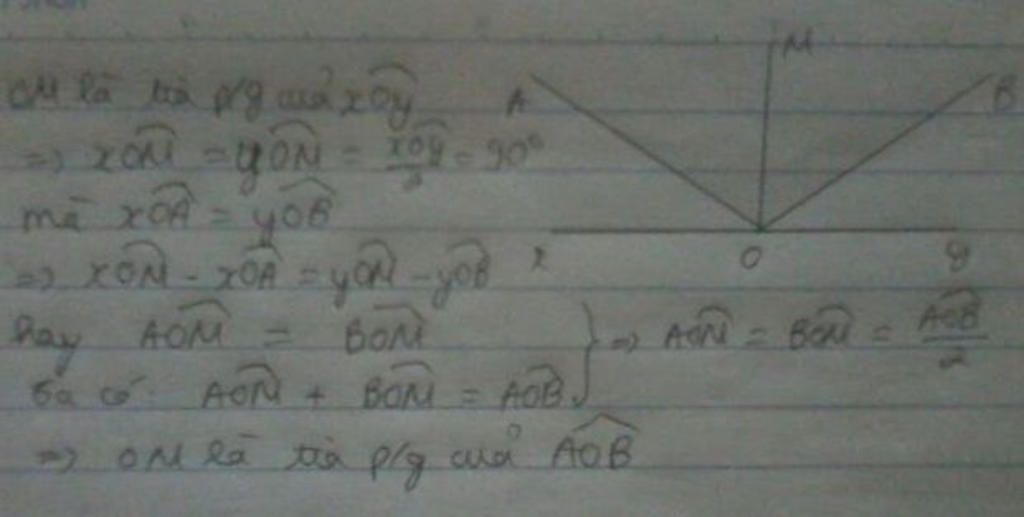 OM là tia p/g của xOy
=> xOM = yOM = xOy/2 = 90°
mà xOA = yOB
=> xOM - xOA = yOM - yOB
hay AOM = BOM
Ta có: AOM + BOM = AOB } => AOM = BOM = AOB/2
=> OM là tia p/g của AOB
M
A
B
x
O
y